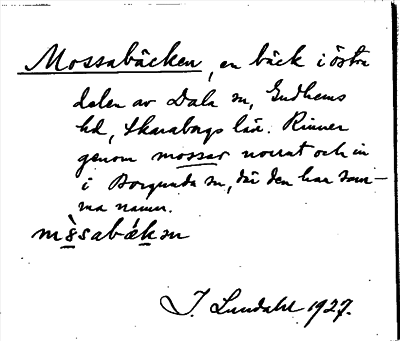 Mossabäcken, en bäck i östra
delen av Dala sn, Gudhems
hd, Skaraborgs län. Rinner
genom mossar norrut och in
i Borgunda sn, där den har sam-
ma namn.
I. Lundahl 1927.